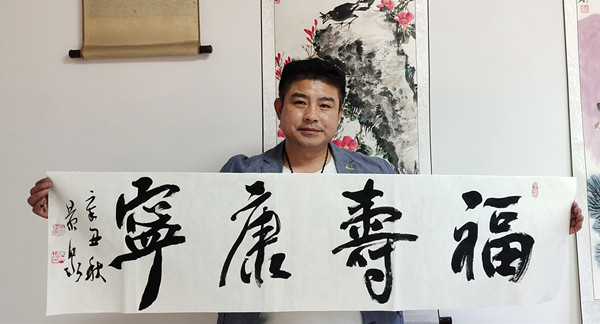 福壽康寧
辛丑秋
景